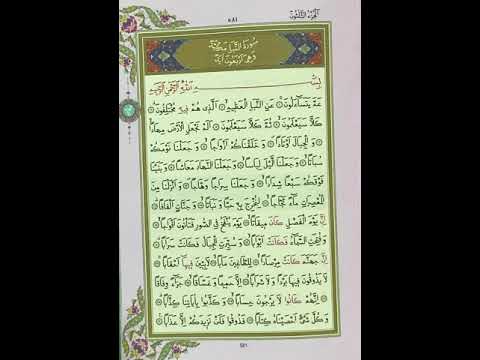 ٥٨١
اَلْجُزْءُ الثَّلٰثُونَ
سُورَةُ النَّبَإِ مَكِّيَّةٌ
وَهِيَ اَرْبَعُونَ اٰيَةً
بِسْمِ اللّٰهِ الرَّحْمٰنِ الرَّحِيمِ
عَمَّ يَتَسَاءَلُونَ عَنِ النَّبَإِ الْعَظِيمِ اَلَّذِى هُمْ فِيهِ مُخْتَلِفُونَ
كَلَّا سَيَعْلَمُونَ ثُمَّ كَلَّا سَيَعْلَمُونَ اَلَمْ نَجْعَلِ الْاَرْضَ مِهَادًا
وَ الْجِبَالَ اَوْتَادًا وَ خَلَقْنَاكُمْ اَزْوَاجًا وَ جَعَلْنَا نَوْمَكُمْ
سُبَاتًا وَ جَعَلْنَا الَّيْلَ لِبَاسًا وَ جَعَلْنَا النَّهَارَ مَعَاشًا وَ بَنَيْنَا
فَوْقَكُمْ سَبْعًا شِدَادًا وَ جَعَلْنَا سِرَاجًا وَهَّاجًا وَ اَنْزَلْنَا مِنَ
الْمُعْصِرَاتِ مَاءً ثَجَّاجًا لِنُخْرِجَ بِهِ حَبًّا وَ نَبَاتًا وَ جَنَّاتٍ اَلْفَافًا
اِنَّ يَوْمَ الْفَصْلِ كَانَ مِيقَاتًا يَوْمَ يُنْفَخُ فِى الصُّورِ فَتَأْتُونَ اَفْوَاجًا
وَ فُتِحَتِ السَّمَاءُ فَكَانَتْ اَبْوَابًا وَ سُيِّرَتِ الْجِبَالُ فَكَانَتْ سَرَابًا
اِنَّ جَهَنَّمَ كَانَتْ مِرْصَادًا لِلطَّاغِينَ مَاٰبًا لَابِثِينَ فِيهَا اَحْقَابًا
لَا يَذُوقُونَ فِيهَا بَرْدًا وَ لَا شَرَابًا اِلَّا حَمِيمًا وَ غَسَّاقًا جَزَاءً وِفَاقًا
اِنَّهُمْ كَانُوا لَا يَرْجُونَ حِسَابًا وَ كَذَّبُوا بِاٰيَاتِنَا كِذَّابًا
وَ كُلَّ شَىْءٍ اَحْصَيْنَاهُ كِتَابًا فَذُوقُوا فَلَنْ نَزِيدَكُمْ اِلَّا عَذَابًا
581